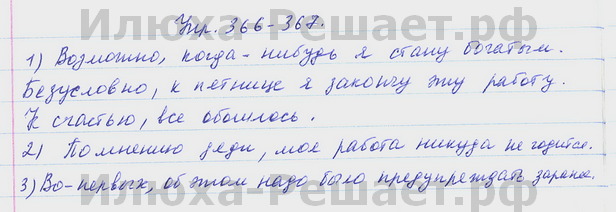 Илюха-Решает.рф
Упр. 366-367.
1) Возможно, когда-нибудь я стану богатым.
Безусловно, к пятнице я закончу эту работу.
К счастью, все обошлось.
2) По мнению дяди, моя работа никуда не годится.
3) Во-первых, об этом надо было предупреждать заранее.
Илюха-Решает.рф